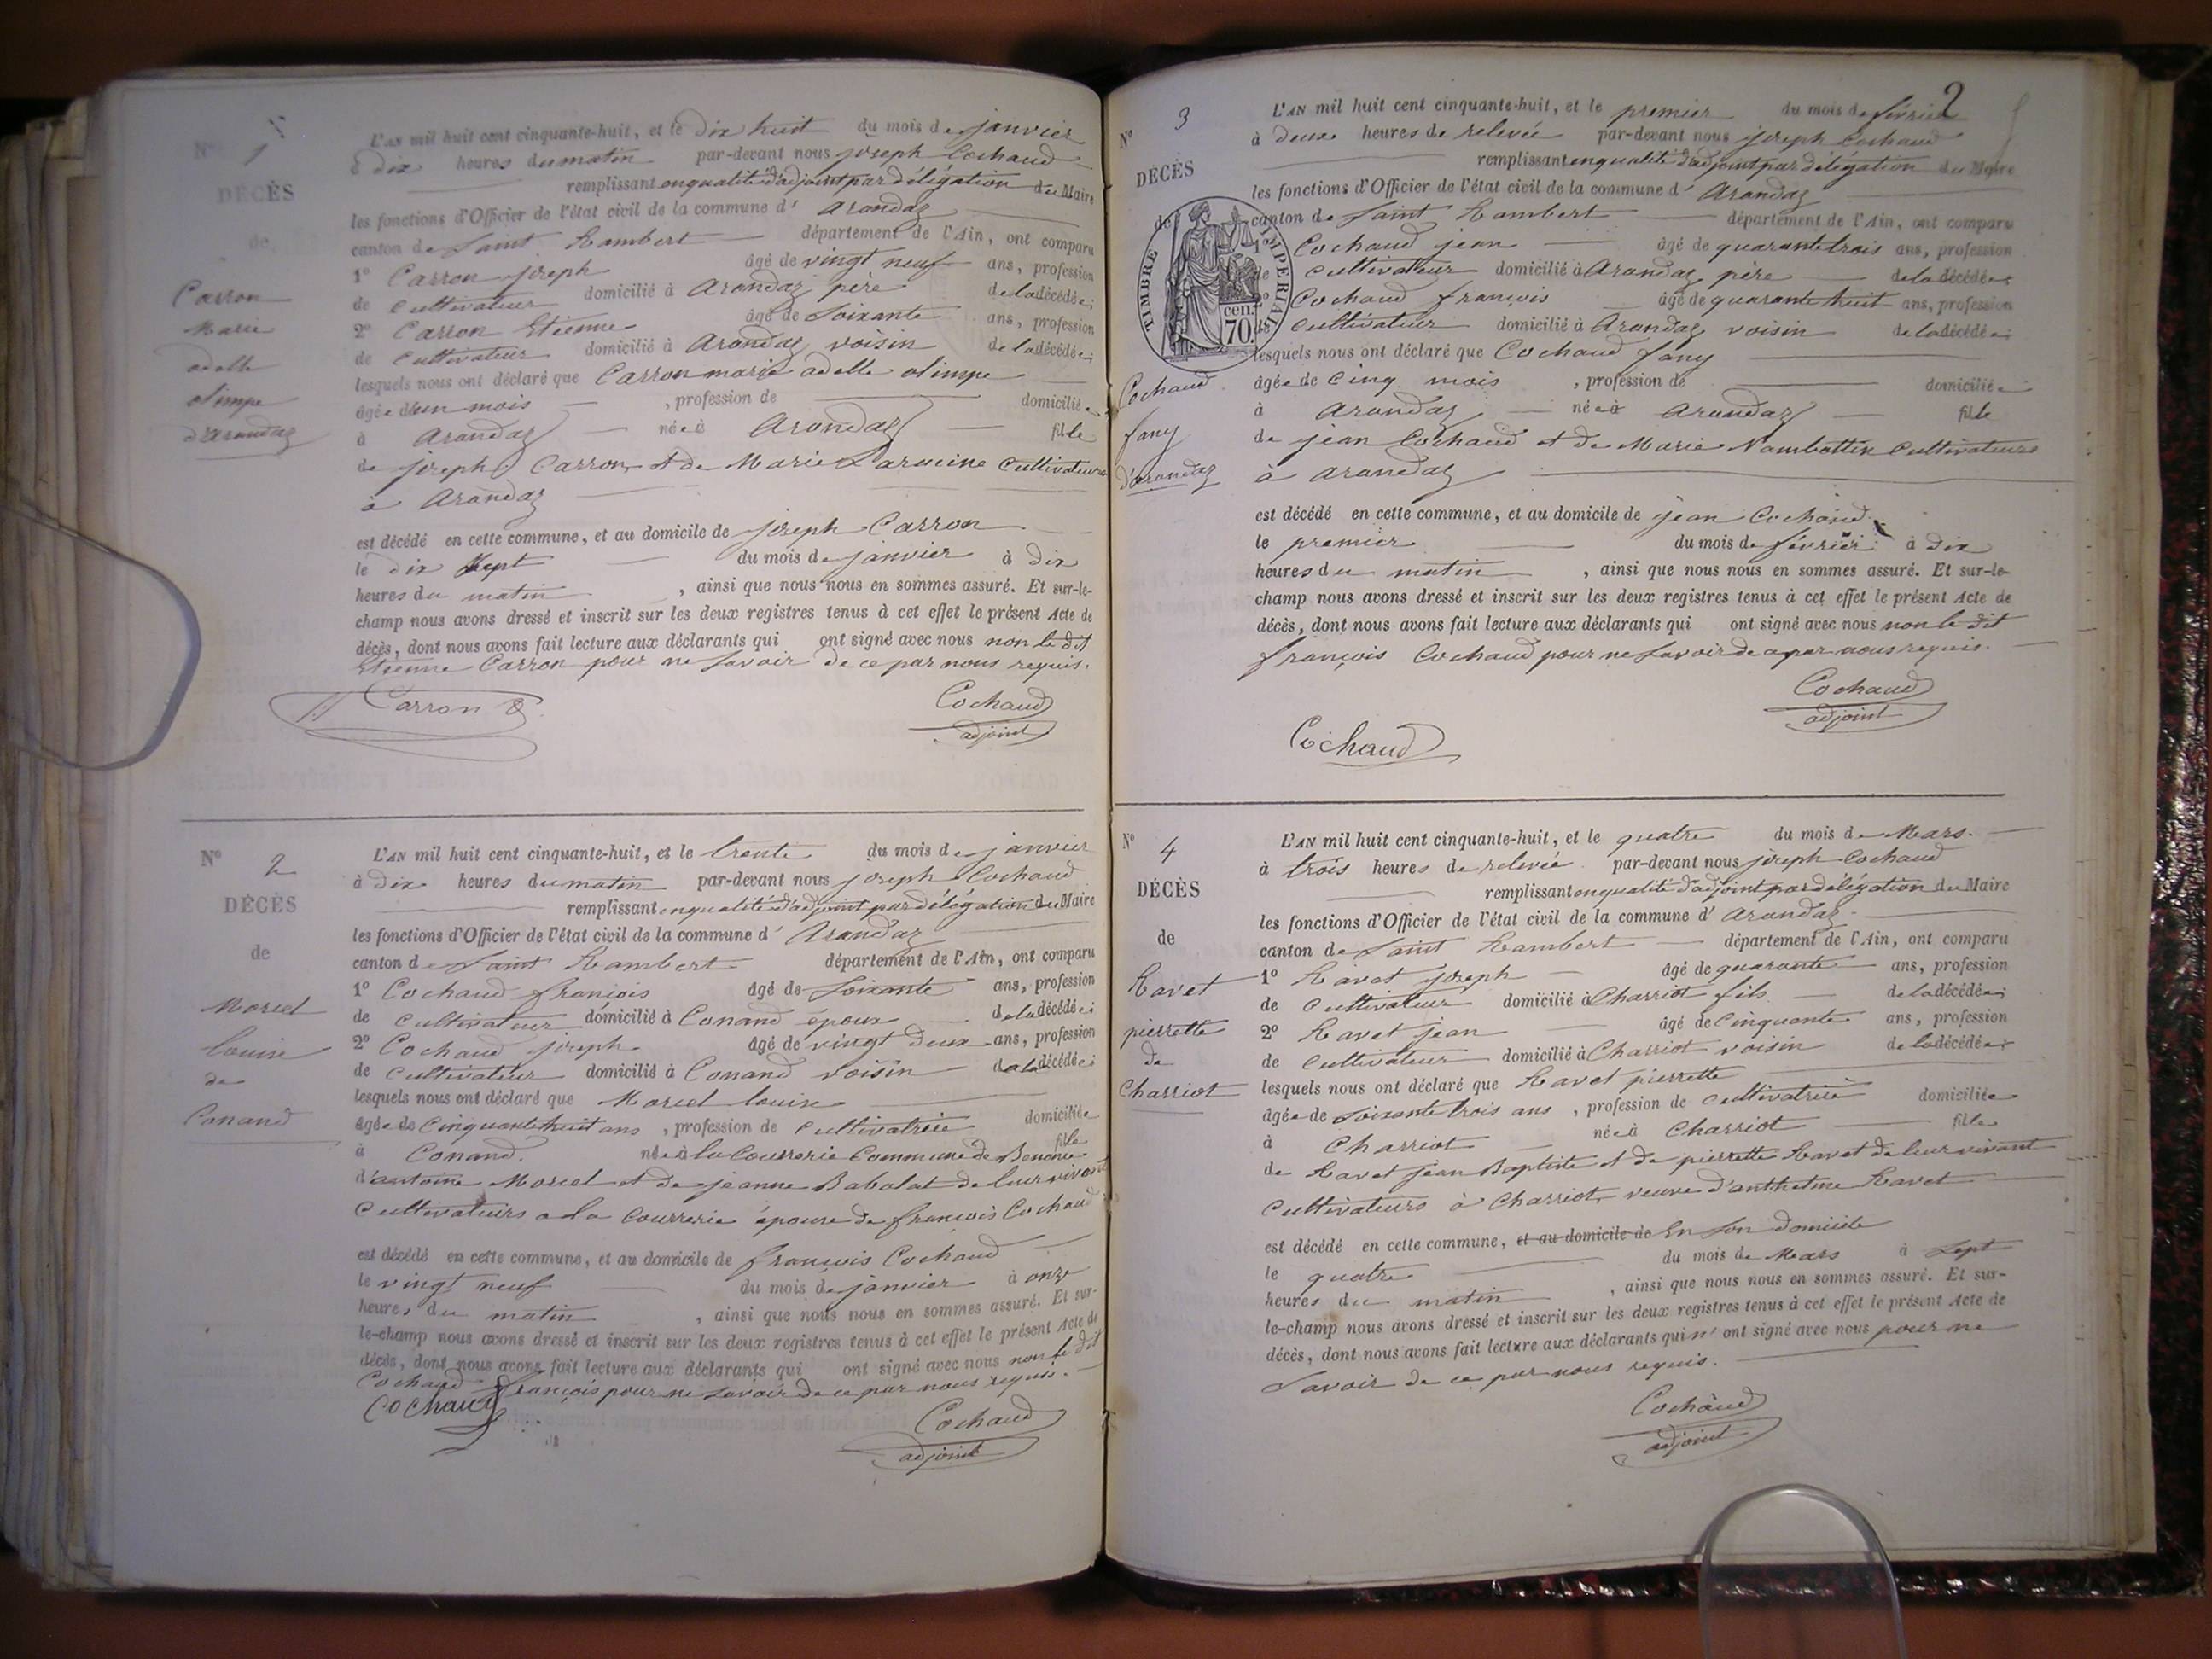 N° 1
DÉCÈS
de
Carron
Marie
adelle
olimpe
d'Arandaz
L'AN mil huit cent cinquante-huit, et le dix huit du mois de janvier
à dix heures du matin par-devant nous joseph Cochaud
remplissant en qualité d'adjoint par délégation du Maire
les fonctions d'Officier de l'état civil de la commune d' Arandaz
canton de Saint Rambert département de l'Ain, ont comparu
1° Carron joseph âgé de vingt neuf ans, profession
de Cultivateur domicilié à Arandaz père de la décédée;
2° Carron Etienne âgé de Soixante ans, profession
de Cultivateur domicilié à Arandaz voisin de la décédée;
lesquels nous ont déclaré que Carron marie adelle olimpe
âgée d'un mois , profession de domiciliée
à Arandaz née à Arandaz fille
de joseph Carron et de Marie Laracine Cultivateurs
à Arandaz
est décédé en cette commune, et au domicile de joseph Carron
le dix Sept du mois de janvier à dix
heures du matin , ainsi que nous nous en sommes assuré. Et sur-le-
champ nous avons dressé et inscrit sur les deux registres tenus à cet effet le présent Acte de
décès, dont nous avons fait lecture aux déclarants qui ont signé avec nous non le dit
Etienne Carron pour ne Savoir de ce par nous requis.
Carron
Cochaud
adjoint
N° 2
DÉCÈS
de
Morcel
louise
de
Conand
L'AN mil huit cent cinquante-huit, et le trente du mois de janvier
à dix heures du matin par-devant nous joseph Cochaud
remplissant en qualité d'adjoint par délégation du Maire
les fonctions d'Officier de l'état civil de la commune d' Arandaz
canton de Saint Rambert département de l'Ain, ont comparu
1° Cochaud françois âgé de Soixante ans, profession
de Cultivateur domicilié à Conand époux de la décédée;
2° Cochaud joseph âgé de vingt deux ans, profession
de Cultivateur domicilié à Conand voisin de la décédée;
lesquels nous ont déclaré que Morcel louise
âgée de Cinquante huit ans , profession de Cultivatrice domiciliée
à Conand. née à la Courrerie Commune de Benonce fille
d'antoine Morcel et de jeanne Babolat de leur vivant
Cultivateurs a la Courrerie épouse de françois Cochaud
est décédé en cette commune, et au domicile de françois Cochaud
le vingt neuf du mois de janvier à onze
heures du matin , ainsi que nous nous en sommes assuré. Et sur-
le-champ nous avons dressé et inscrit sur les deux registres tenus à cet effet le présent Acte de
décès, dont nous avons fait lecture aux déclarants qui ont signé avec nous non le dit
Cochaud françois pour ne Savoir de ce par nous requis.
Cochaud
Cochaud
adjoint
2
N° 3
DÉCÈS
de
TIMBRE IMPERIAL
cen.
70.
Cochaud
fany
d'arandaz
L'AN mil huit cent cinquante-huit, et le premier du mois de février
à deux heures de relevée par-devant nous joseph Cochaud
remplissant en qualité d'adjoint par délégation du Maire
les fonctions d'Officier de l'état civil de la commune d' Arandaz
canton de Saint Rambert département de l'Ain, ont comparu
1° Cochaud jean âgé de quarante trois ans, profession
de Cultivateur domicilié à Arandaz père de la décédée;
2° Cochaud françois âgé de quarante huit ans, profession
de Cultivateur domicilié à Arandaz voisin de la décédée;
lesquels nous ont déclaré que Cochaud fany
âgée de Cinq mois , profession de domiciliée
à Arandaz née à Arandaz fille
de jean Cochaud et de Marie Nambottin Cultivateurs
à arandaz
est décédé en cette commune, et au domicile de jean Cochaud.
le premier du mois de février à dix
heures du matin , ainsi que nous nous en sommes assuré. Et sur-le-
champ nous avons dressé et inscrit sur les deux registres tenus à cet effet le présent Acte de
décès, dont nous avons fait lecture aux déclarants qui ont signé avec nous non le dit
françois Cochaud pour ne Savoir de ce par nous requis.
Cochaud
adjoint
Cochaud
N° 4
DÉCÈS
de
Ravet
pierrette
de
Charriot
L'AN mil huit cent cinquante-huit, et le quatre du mois de Mars.
à trois heures de relevée par-devant nous joseph Cochaud
remplissant en qualité d'adjoint par délégation du Maire
les fonctions d'Officier de l'état civil de la commune d' Arandaz
canton de Saint Rambert département de l'Ain, ont comparu
1° Ravet joseph âgé de quarante ans, profession
de Cultivateur domicilié à Charriot fils de la décédée;
2° Ravet jean âgé de Cinquante ans, profession
de Cultivateur domicilié à Charriot voisin de la décédée;
lesquels nous ont déclaré que Ravet pierrette
âgée de Soixante trois ans , profession de Cultivatrice domiciliée
à Charriot née à Charriot fille
de Ravet jean Baptiste et de pierrette Ravet de leur vivant
Cultivateurs à Charriot, veuve d'anthelme Ravet
est décédé en cette commune, et au domicile de En Son domicile
le quatre du mois de Mars à Sept
heures du matin , ainsi que nous nous en sommes assuré. Et sur-
le-champ nous avons dressé et inscrit sur les deux registres tenus à cet effet le présent Acte de
décès, dont nous avons fait lecture aux déclarants qui n' ont signé avec nous pour ne
Savoir de ce par nous requis.
Cochaud
adjoint